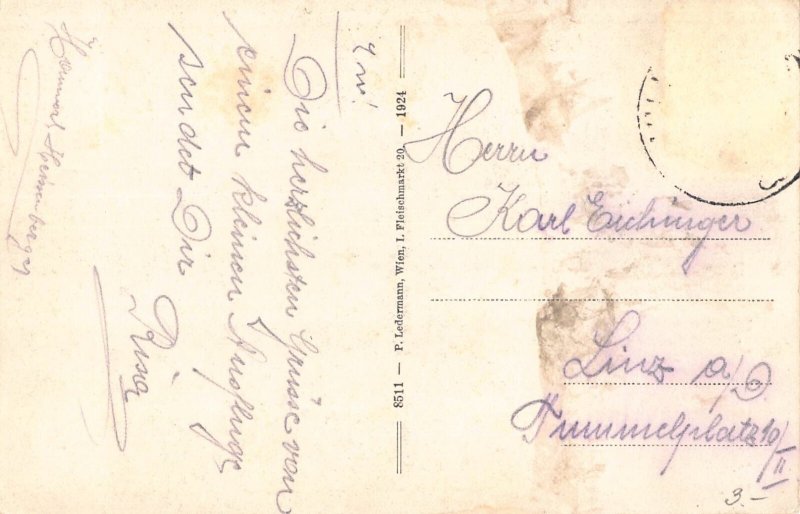 Die herzlichsten Grüsse von
einem kleinen Ausfluge
sendet Dir
Risa
8511 — P. Ledermann, Wien, I. Fleischmarkt 20. — 1924
Herrn
Karl Eichinger
Linz a/D
Tummelplatz 10/II
3.-